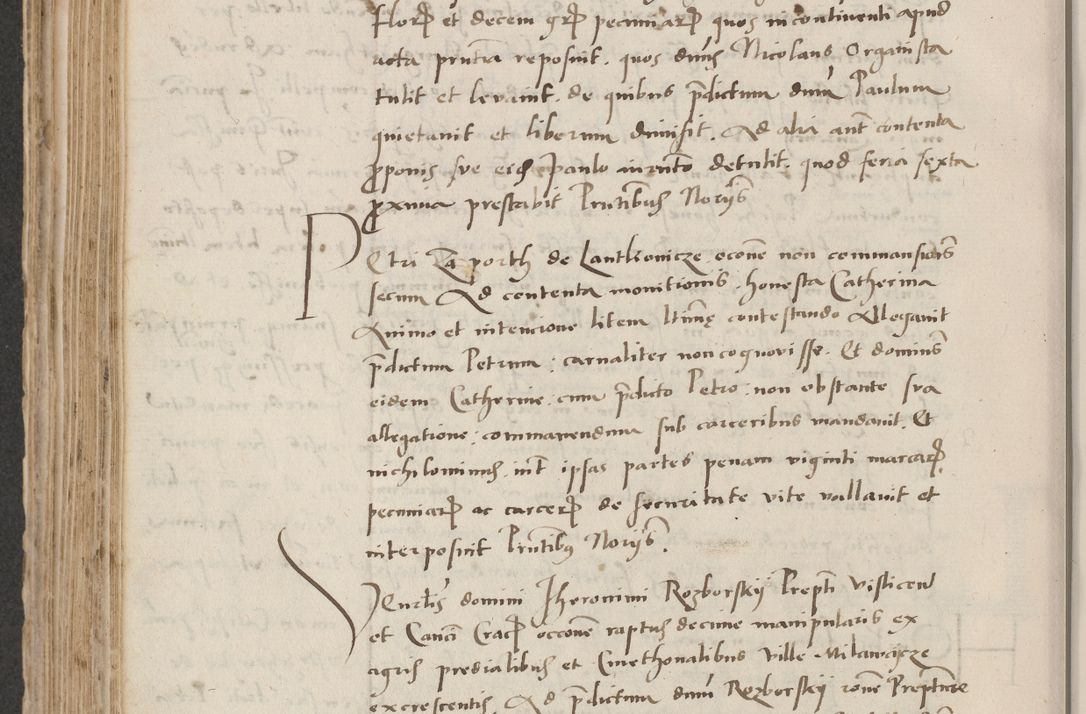 florꝝ et decem grꝝ pecuniarꝝ quos incontinenti apud
acta pn̄tia reposuit. quos dn̄us Nicolaus Organista
tulit et levavit. de quibus p̄dictum dn̄m Paulum
quietavit et liberum dimisit. Ad alia aūt contenta
ꝓponis sue eid Paulo iurn̄to detulit. quod feria sexta
ꝓxima prestabit Pn̄tibus Norijs
Petri Za porth de Lantkonicze occōne non commansionis
secum Ad contenta monitionis. honesta Catherina
Animo et intencione litem ltimę contestando Allegavit
p̄dictum Petrum : carnaliter non cognovisse. Et dominus
eidem Catherine : cum p̄dicto Petro : non obstante sua
allegatione : commanendum sub carceribus mandavit. Et
nichilominus int ipsas partes penam viginti marcarꝝ
pecuniarꝝ ac carcerꝝ de securitate vite vallavit et
interposuit Pn̄tibus Norijs.
Venerlis domini Iheronimi Rozborskij Prepti Visliceñ
et Canci Cracꝝ occōne raptus decime manipularis ex
agris predialibus et Cmethonalibus ville Milawcicze
excrescentis. Ad p̄dictum dn̄m Rozborskij rōne Prepture